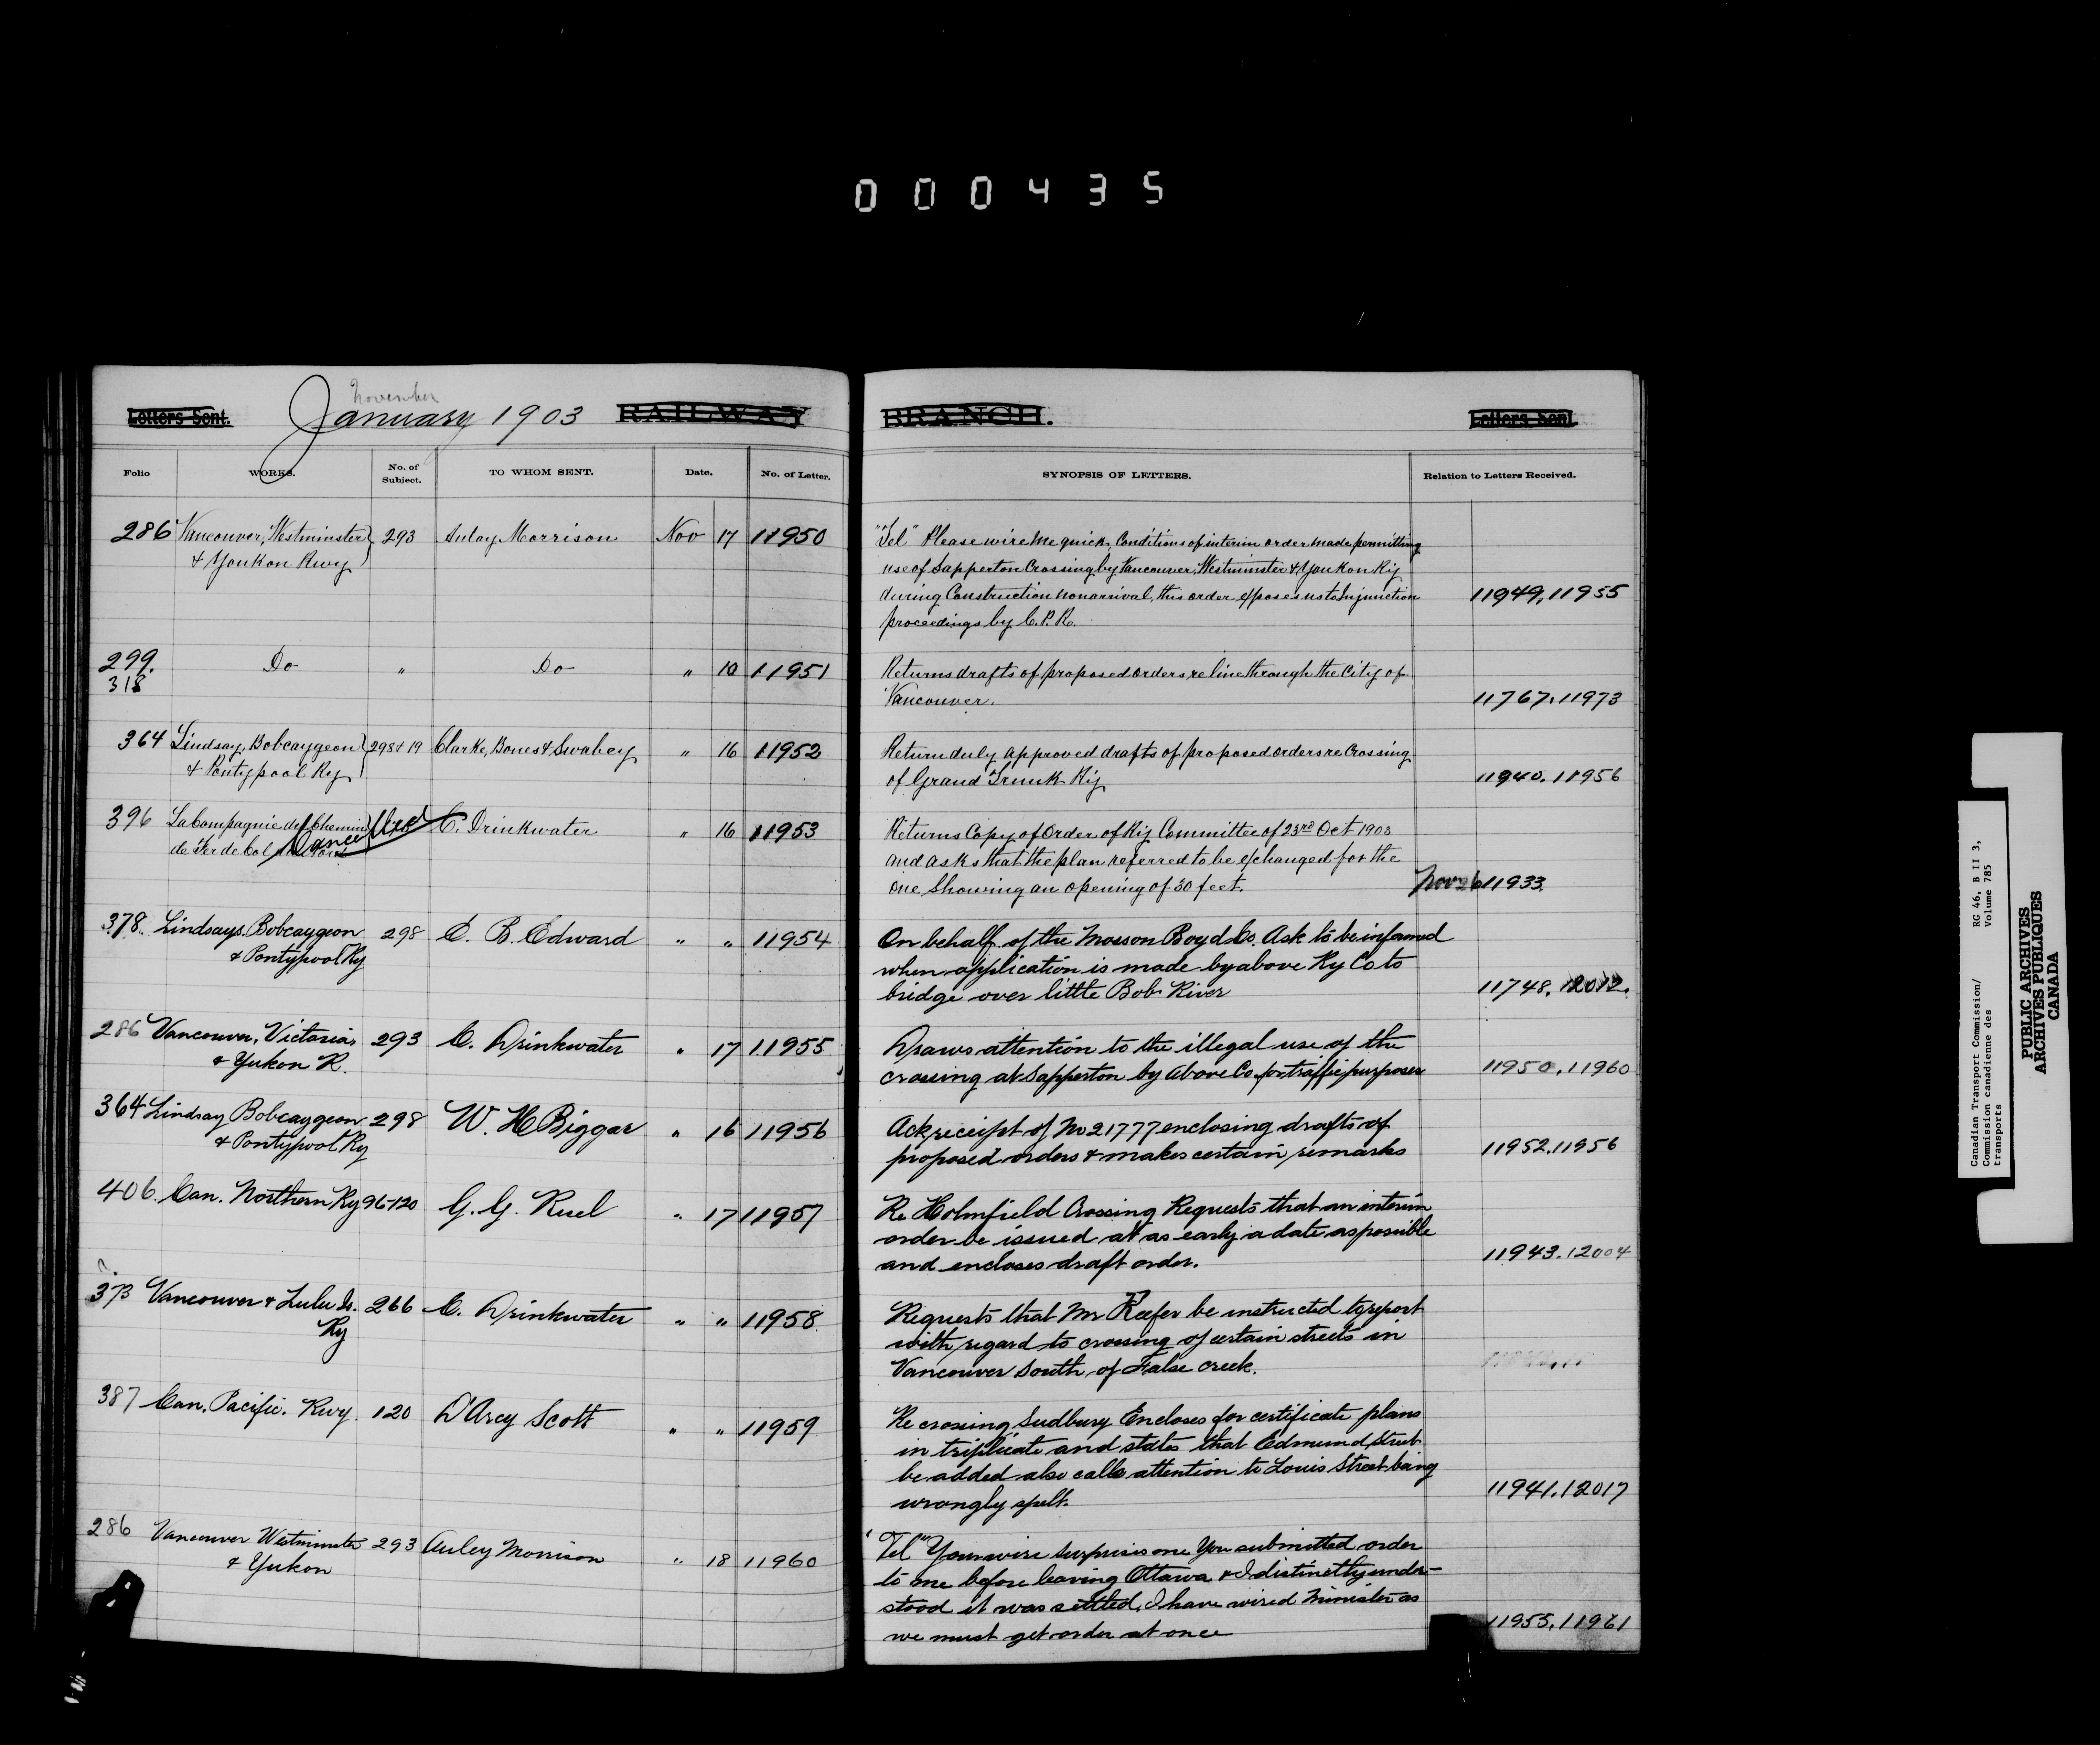 000435
November
Letters Sent. January 1903 RAILWAY BRANCH. Letters Sent.
Folio WORKS. No. of Subject. TO WHOM SENT. Date. No. of Letter. SYNOPSIS OF LETTERS. Relation to Letters Received.
286 Vancouver, Westminster 293 Aulay Morrison Nov 17 11950 "Tel" Please wire me quick, Conditions of interim order made permitting
& Youkon Rwy use of Sapperton Crossing by Vancouver, Westminster & Youkon Ry
during Construction nonarrival, this order exposes us to Injunction 11949, 11955
proceedings by C.P.R.
299. Do " Do " 10 11951 Returns drafts of proposed orders re line through the City of
318 Vancouver. 11767. 11973
364 Lindsay, Bobcaygeon 298 & 19 Clarke, Bones & Swabey " 16 11952 Return duly approved drafts of proposed orders re Crossing
& Pontypool Ry of Grand Trunk Ry 11940. 11956
396 La Compagnie du Chemin C. Drinkwater " 16 11953 Returns Copy of Order of Ry Committee of 23rd Oct 1903
de Fer de Cancelled and asks that the plan referred to be exchanged for the
one Showing an opening of 30 feet. Nov 26 11933.
378. Lindsays. Bobcaygeon 298 C. B. Edward " " 11954 On behalf of the Mosson Boyd Co. Ask to be informed
& Pontypool Ry when application is made by above Ry Co to
bridge over little Bob River 11748. 12012.
286 Vancouver, Victoria, 293 C. Drinkwater " 17 11955 Draws attention to the illegal use of the
& Yukon R. crossing at Sapperton by Above Co. for traffic purposes 11950. 11960
364 Lindsay Bobcaygeon 298 W. H Biggar " 16 11956 Ack receipt of No 21777 enclosing drafts of
& Pontypool Ry proposed orders & makes certain remarks 11952. 11956
406. Can. Northern Ry 96-120 G. G. Ruel " 17 11957 Re Holmfield Crossing Requests that an interim
order be issued at as early a date as possible
and encloses draft order. 11943. 12004
373 Vancouver & Lulu Is. 266 C. Drinkwater " " 11958. Requests that Mr Keefer be instructed to report
Ry with regard to crossing of certain streets in
Vancouver South of False creek.
387 Can. Pacific. Rwy. 120 D'Arcy Scott " " 11959 Re crossing, Sudbury Encloses for certificate plans
in triplicate and states that Edmund Street
be added also calls attention to Louis Street being
wrongly spelt. 11941. 12017
286 Vancouver Westminster 293 Auley Morrison " 18 11960 "Tel" Your wire surprises me You submitted order
& Yukon to me before leaving Ottawa & I distinctly under-
stood it was settled, I have wired Minister as
we must get order at once 11955. 11961
Canadian Transport Commission/ RG 46, B II 3,
Commission canadienne des Volume 785
transports
PUBLIC ARCHIVES
ARCHIVES PUBLIQUES
CANADA